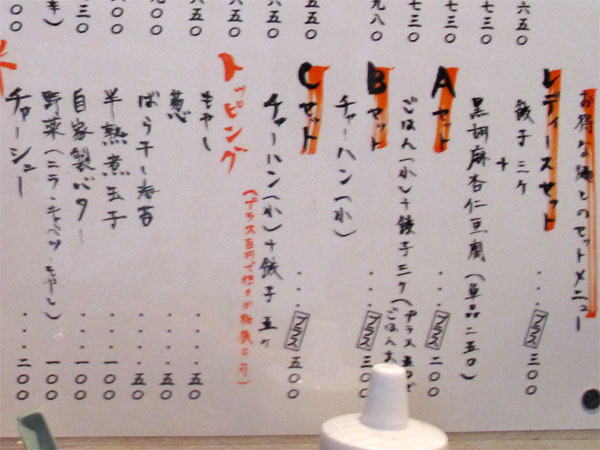 お得な麺とのセットメニュー
レディースセット・・・プラス三〇〇
餃子三ケ
+
黒胡麻杏仁豆腐(単品二五〇)
Aセット・・・プラス二〇〇
ごはん(小)+餃子三ケ(プラス五〇で
ごはん大
Bセット・・・プラス三〇
チャーハン(小)
Cセット・・・・プラス五〇〇
チャーハン(小)+餃子五ケ
トッピング
(プラス百円で
もやし・・・・・五〇
葱・・・・・五〇
ばら干し海苔・・・・五〇
半熟煮玉子・・・・一〇〇
自家製バター・・・・一〇〇
野菜(ニラ・キャベツ・もやし)・・・・一〇〇
チャーシュー・・・・二〇〇
六五〇
七三〇
七三〇
九八〇
五五〇
六五〇